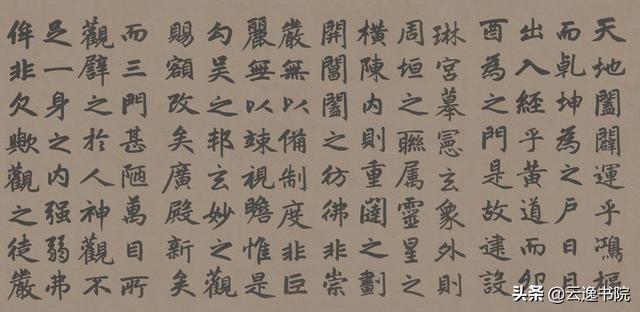 天地闔闢運乎鴻樞
而乹坤為之戶日月
出入經乎黃道而卯
酉為之門是故建設
琳宮摹憲玄象外則
周垣之聯属靈星之
橫陳內則重闥之劃
開閶闔之彷彿非崇
嚴無以備制度非巨
麗無以竦視瞻惟是
勾吳之邦玄妙之觀
賜額改矣廣殿新矣
而三門甚陋萬目所
觀譬之於人神觀不
足一身之内强弱弗
侔非欠歟觀之徒嚴
头条 @云逸书院